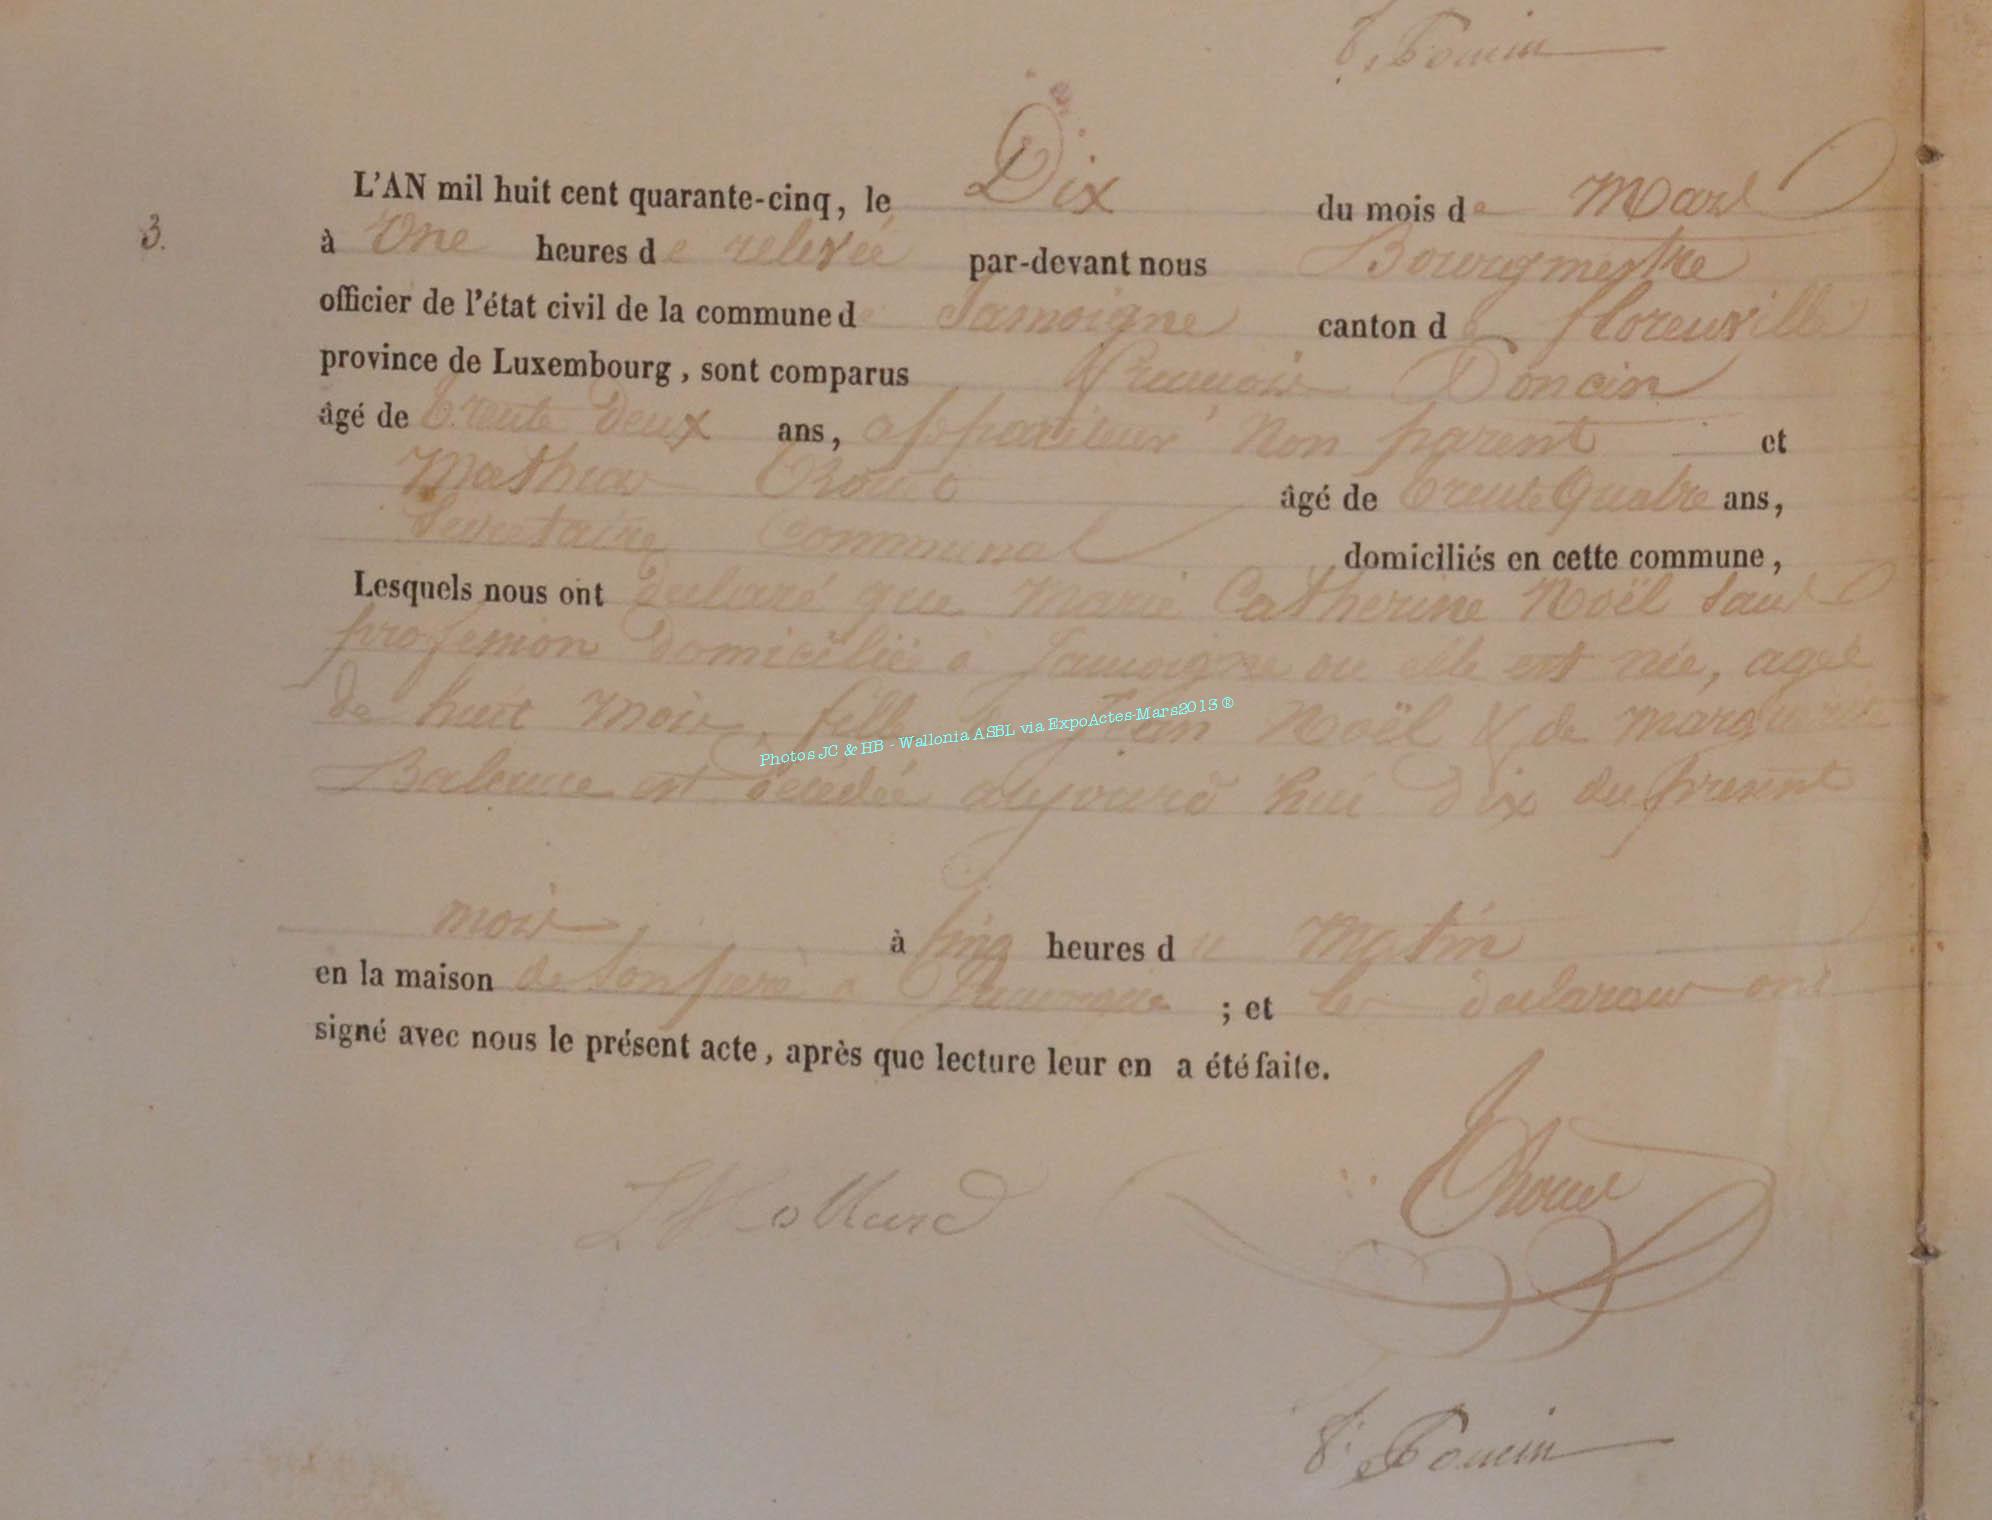 F. Poncin
L'AN mil huit cent quarante-cinq, le Dix du mois de Mars
3.
à Une heures de relevée par-devant nous Bourgmestre
officier de l'état civil de la commune de Jamoigne canton de florenville
province de Luxembourg, sont comparus François Poncin
âgé de trente Deux ans, appariteur Non parent et
Mathias âgé de trente Quatre ans,
Secretaire Communal domiciliés en cette commune,
Lesquels nous ont Declaré que Marie Catherine Noël Sans
profession Domiciliée a Jamoigne ou elle est née, agée
de huit Mois, fille de Jean Noël & de Marguerite
est Décédée aujourd'hui dix du present
Photos JC & HB - Wallonia ASBL via ExpoActes-Mars2013 ®
mois, à Cinq heures du Matin
en la maison de Son pere a Jamoigne ; et les declarans ont
signé avec nous le présent acte, après que lecture leur en a été faite.
F. Poncin